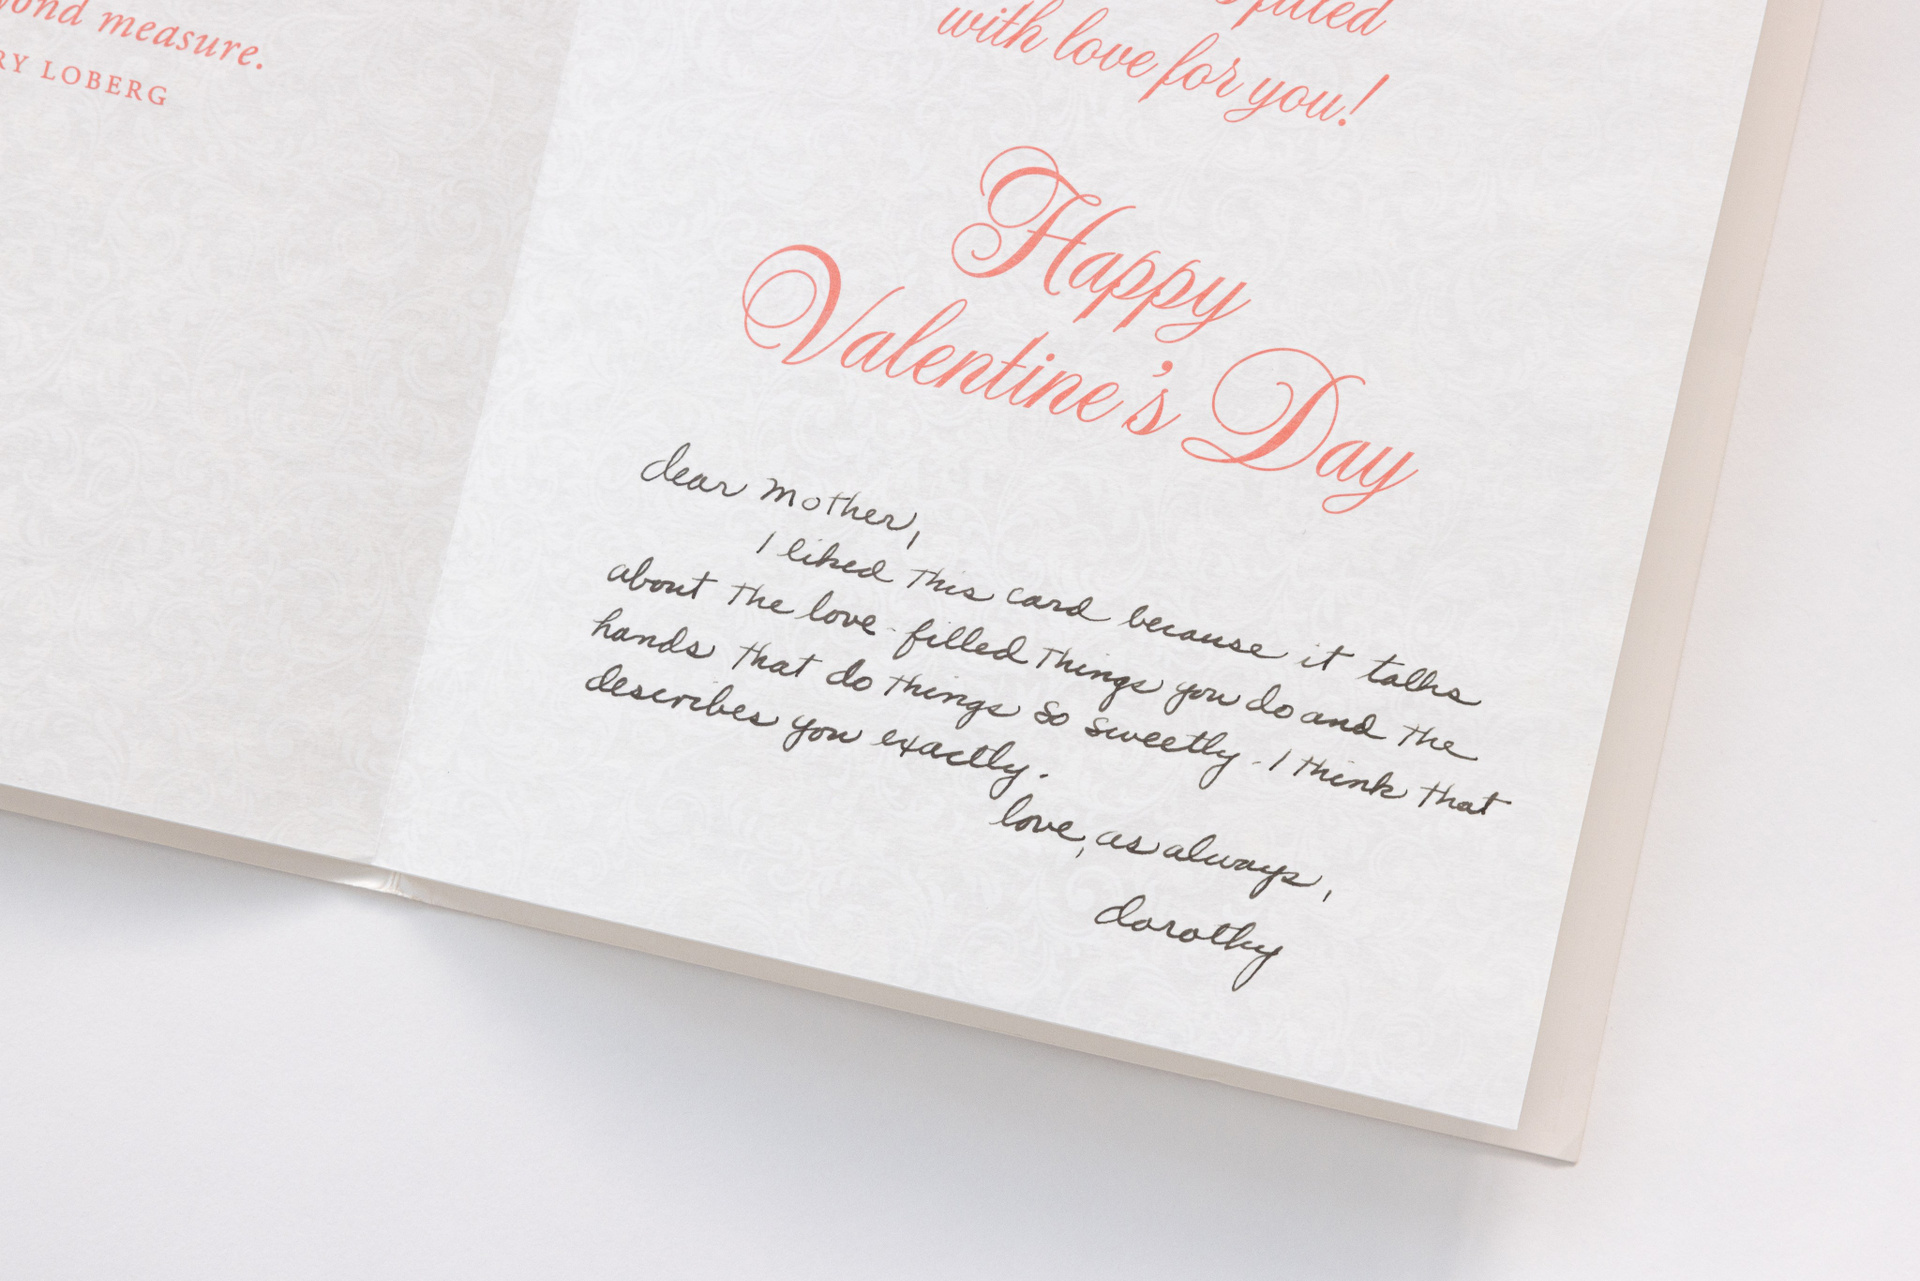 measure.
LOBERG
with love for you!
Happy
Valentine's Day
dear mother,
I liked this card because it talks
about the love-filled things you do and the
hands that do things so sweetly - I think that
describes you exactly.
love, as always,
dorothy